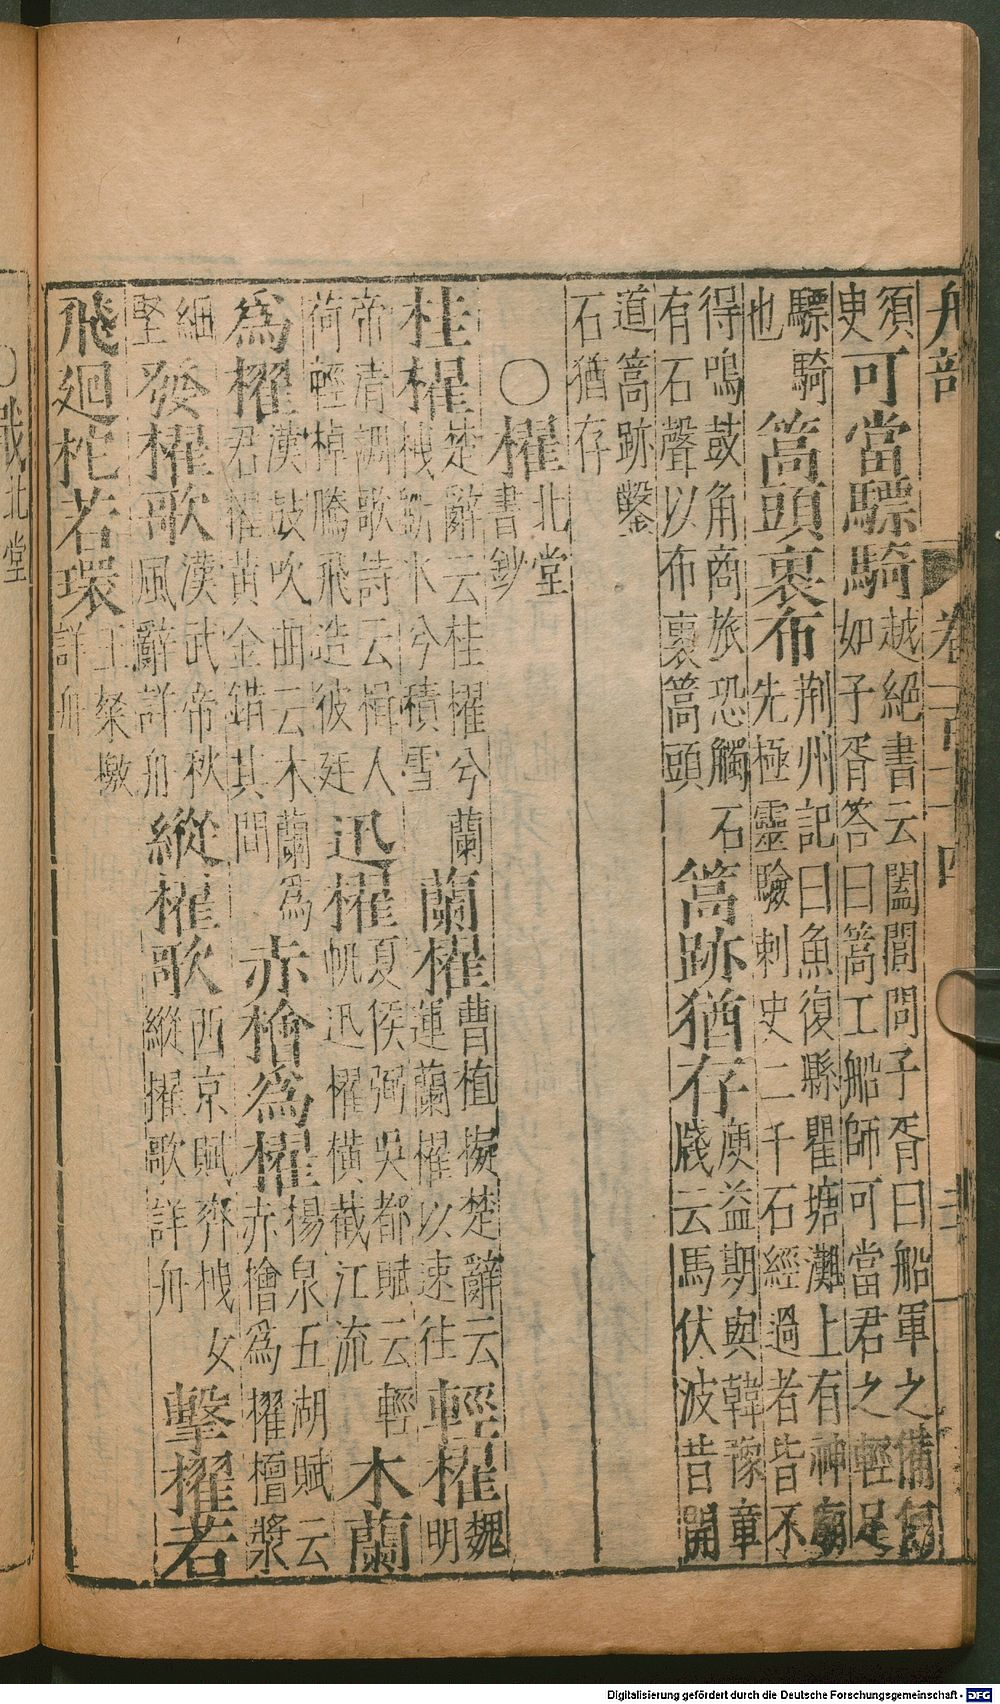 舟部 卷一百三十四
須
吏
可當驃騎
越絕書云闔閭問子胥曰船軍之備何
如子胥答曰篙工船師可當君之輕足
驃騎
也
篙頭裹布
荆州記曰魚復縣瞿塘灘上有神廟
先極靈驗刺史二千石經過者皆不
得鳴鼓角商旅恐觸石
有石聲以布裹篙頭
篙跡猶存
庾益期與韓豫章
牋云馬伏波昔開
道篙跡鑿
石猶存
〇櫂
北堂
書鈔
桂櫂
楚辭云桂櫂兮蘭
栧斲冰兮積雪
蘭櫂
曹植擬楚辭云
運蘭櫂以速往
輕櫂
魏
明
帝清調歌詩云楫人
荷輕棹騰飛造彼廷
迅櫂
夏侯弼吳都賦云輕
帆迅櫂橫截江流
木蘭
為櫂
漢鼓吹曲云木蘭為
君櫂黃金錯其間
赤檜為櫂
揚泉五湖賦云
赤檜為櫂檀槳
細
堅
發櫂歌
漢武帝秋
風辭詳舟
縱櫂歌
西京賦齊栧女
縱櫂歌詳舟
擊櫂若
飛廻柁若環
王粲檄
詳舟
〇戰
北堂
Digitalisierung gefördert durch die Deutsche Forschungsgemeinschaft - DFG